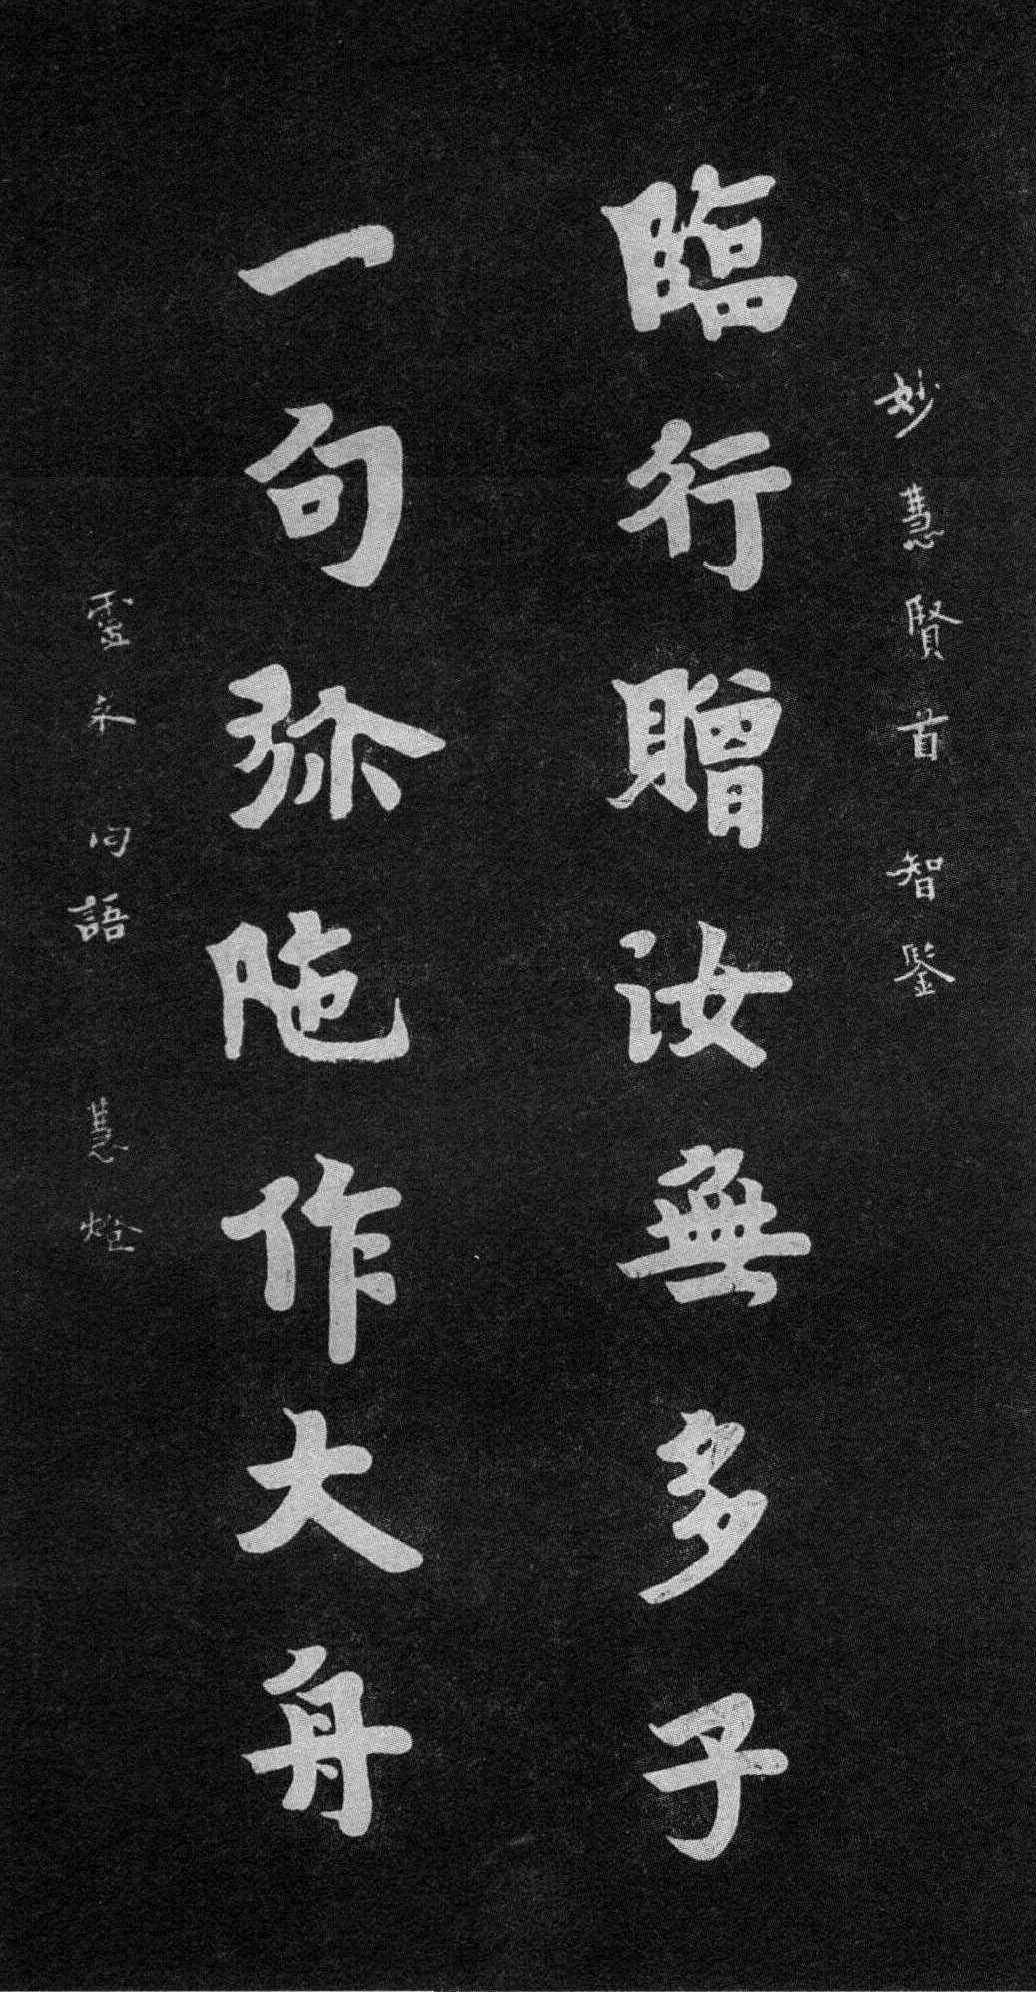 妙慧賢首 智鑒
臨行贈汝無多子
一句弥陁作大舟
語 慧燈